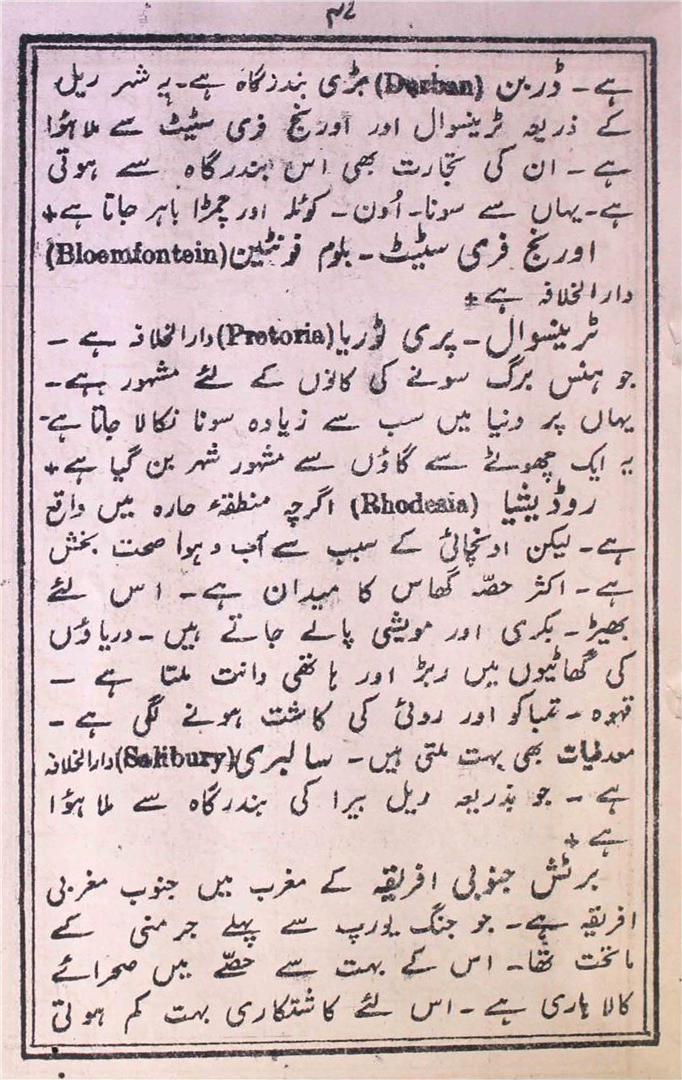 ۴۷
ہے ۔ ڈربن (Durban) بڑی بندرگاہ ہے ۔ یہ شہر ریل
کے ذریعہ ٹرینسوال اور اورینج فری سٹیٹ سے ملا ہؤا
ہے ۔ ان کی تجارت بھی اس بندرگاہ سے ہوتی
ہے ۔ یہاں سے سونا ۔ اُون ۔ کوئلہ اور چمڑا باہر جاتا ہے +
اورینج فری سٹیٹ ۔ بلوم فونٹین (Bloemfontein)
دارالخلافہ ہے +
ٹرینسوال ۔ پری ٹوریا (Pretoria) دارالخلافہ ہے ۔
جو ہنس برگ سونے کی کانوں کے لئے مشہور ہے ۔
یہاں پر دنیا میں سب سے زیادہ سونا نکالا جاتا ہے ۔
یہ ایک چھوٹے سے گاؤں سے مشہور شہر بن گیا ہے +
روڈیشیا (Rhodesia) اگرچہ منطقۂ حارہ میں واقع
ہے ۔ لیکن اونچائی کے سبب سے آب و ہوا صحت بخش
ہے ۔ اکثر حصّہ گھاس کا میدان ہے ۔ اس لئے
بھیڑ ۔ بکری اور مویشی پالے جاتے ہیں ۔ دریاؤں
کی گھاٹیوں میں ربڑ اور ہاتھی دانت ملتا ہے ۔
قہوہ ۔ تمباکو اور روئی کی کاشت ہونے لگی ہے ۔
معدنیات بھی بہت ملتی ہیں ۔ سالبری (Salibury) دارالخلافہ
ہے ۔ جو بذریعہ ریل بیرا کی بندرگاہ سے ملا ہؤا
ہے +
برٹش جنوبی افریقہ کے مغرب میں جنوب مغربی
افریقہ ہے ۔ جو جنگ یورپ سے پہلے جرمنی کے
ماتحت تھا ۔ اس کے بہت سے حصّے میں صحرائے
کالا ہاری ہے ۔ اس لئے کاشتکاری بہت کم ہوتی